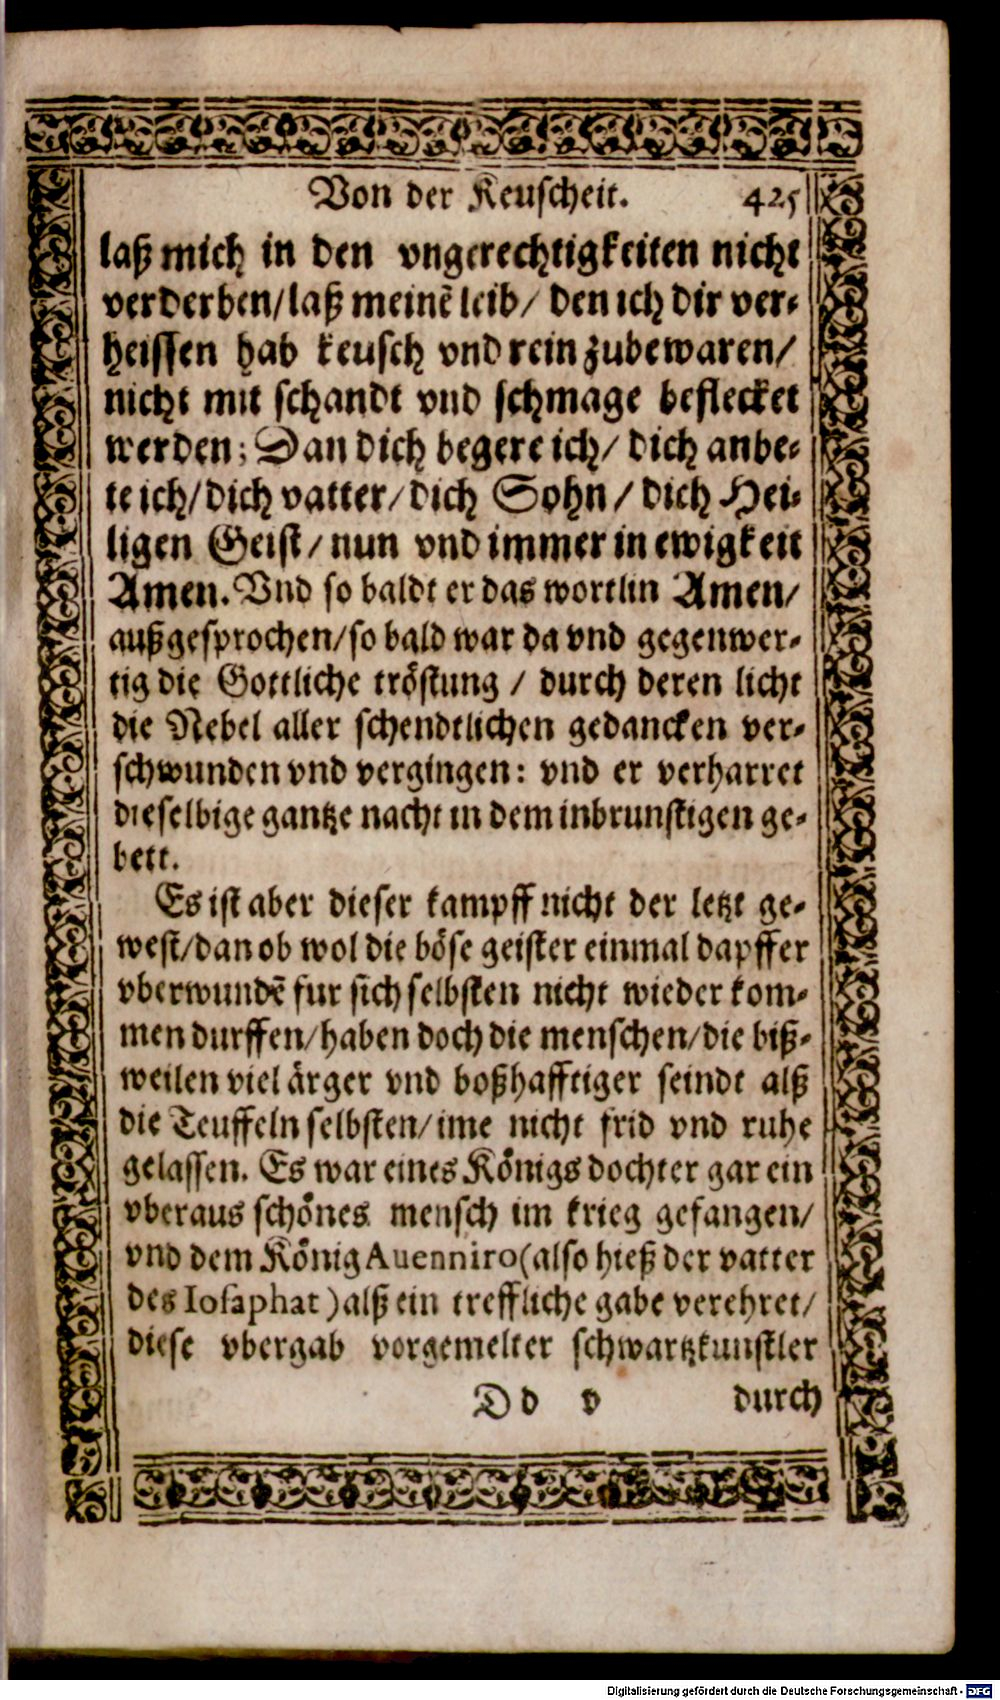 Von der Keuscheit. 425
laß mich in den vngerechtigkeiten nicht
verderben/laß meinē leib/ den ich dir ver-
heissen hab keusch vnd rein zubewaren/
nicht mit schandt vnd schmage beflecket
werden; Dan dich begere ich/ dich anbe-
te ich/dich vatter/dich Sohn/ dich Hei-
ligen Geist/nun vnd immer in ewigkeit
Amen. Vnd so baldt er das wortlin Amen/
außgesprochen/so bald war da vnd gegenwer-
tig die Gottliche tröstung / durch deren licht
die Nebel aller schendtlichen gedancken ver-
schwunden vnd vergingen: vnd er verharret
dieselbige gantze nacht in dem inbrunstigen ge-
bett.
Es ist aber dieser kampff nicht der letzt ge-
west/dan ob wol die böse geister einmal dapffer
vberwundē fur sich selbsten nicht wieder kom-
men durffen/haben doch die menschen/die biß-
weilen viel ärger vnd boßhafftiger seindt alß
die Teuffeln selbsten/ime nicht frid vnd ruhe
gelassen. Es war eines Königs dochter gar ein
vberaus schönes mensch im krieg gefangen/
vnd dem König Auenniro(also hieß der vatter
des Iosaphat)alß ein treffliche gabe verehret/
diese vbergab vorgemelter schwartzkunstler
Dd v durch
Digitalisierung gefördert durch die Deutsche Forschungsgemeinschaft - DFG